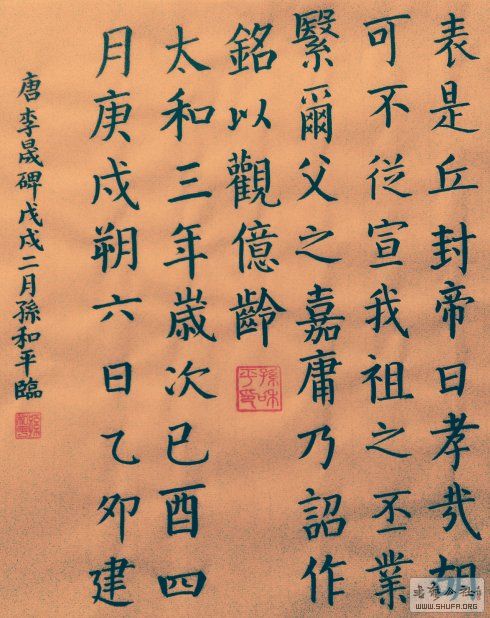 表是丘封帝曰孝哉胡
可不從宣我祖之丕業
繄爾父之嘉庸乃詔作
銘以觀億齡
太和三年歲次已酉四
月庚戌朔六日乙卯建
唐李晟碑戊戌二月孫和平臨
孫和平印
WWW.SHUFA.ORG